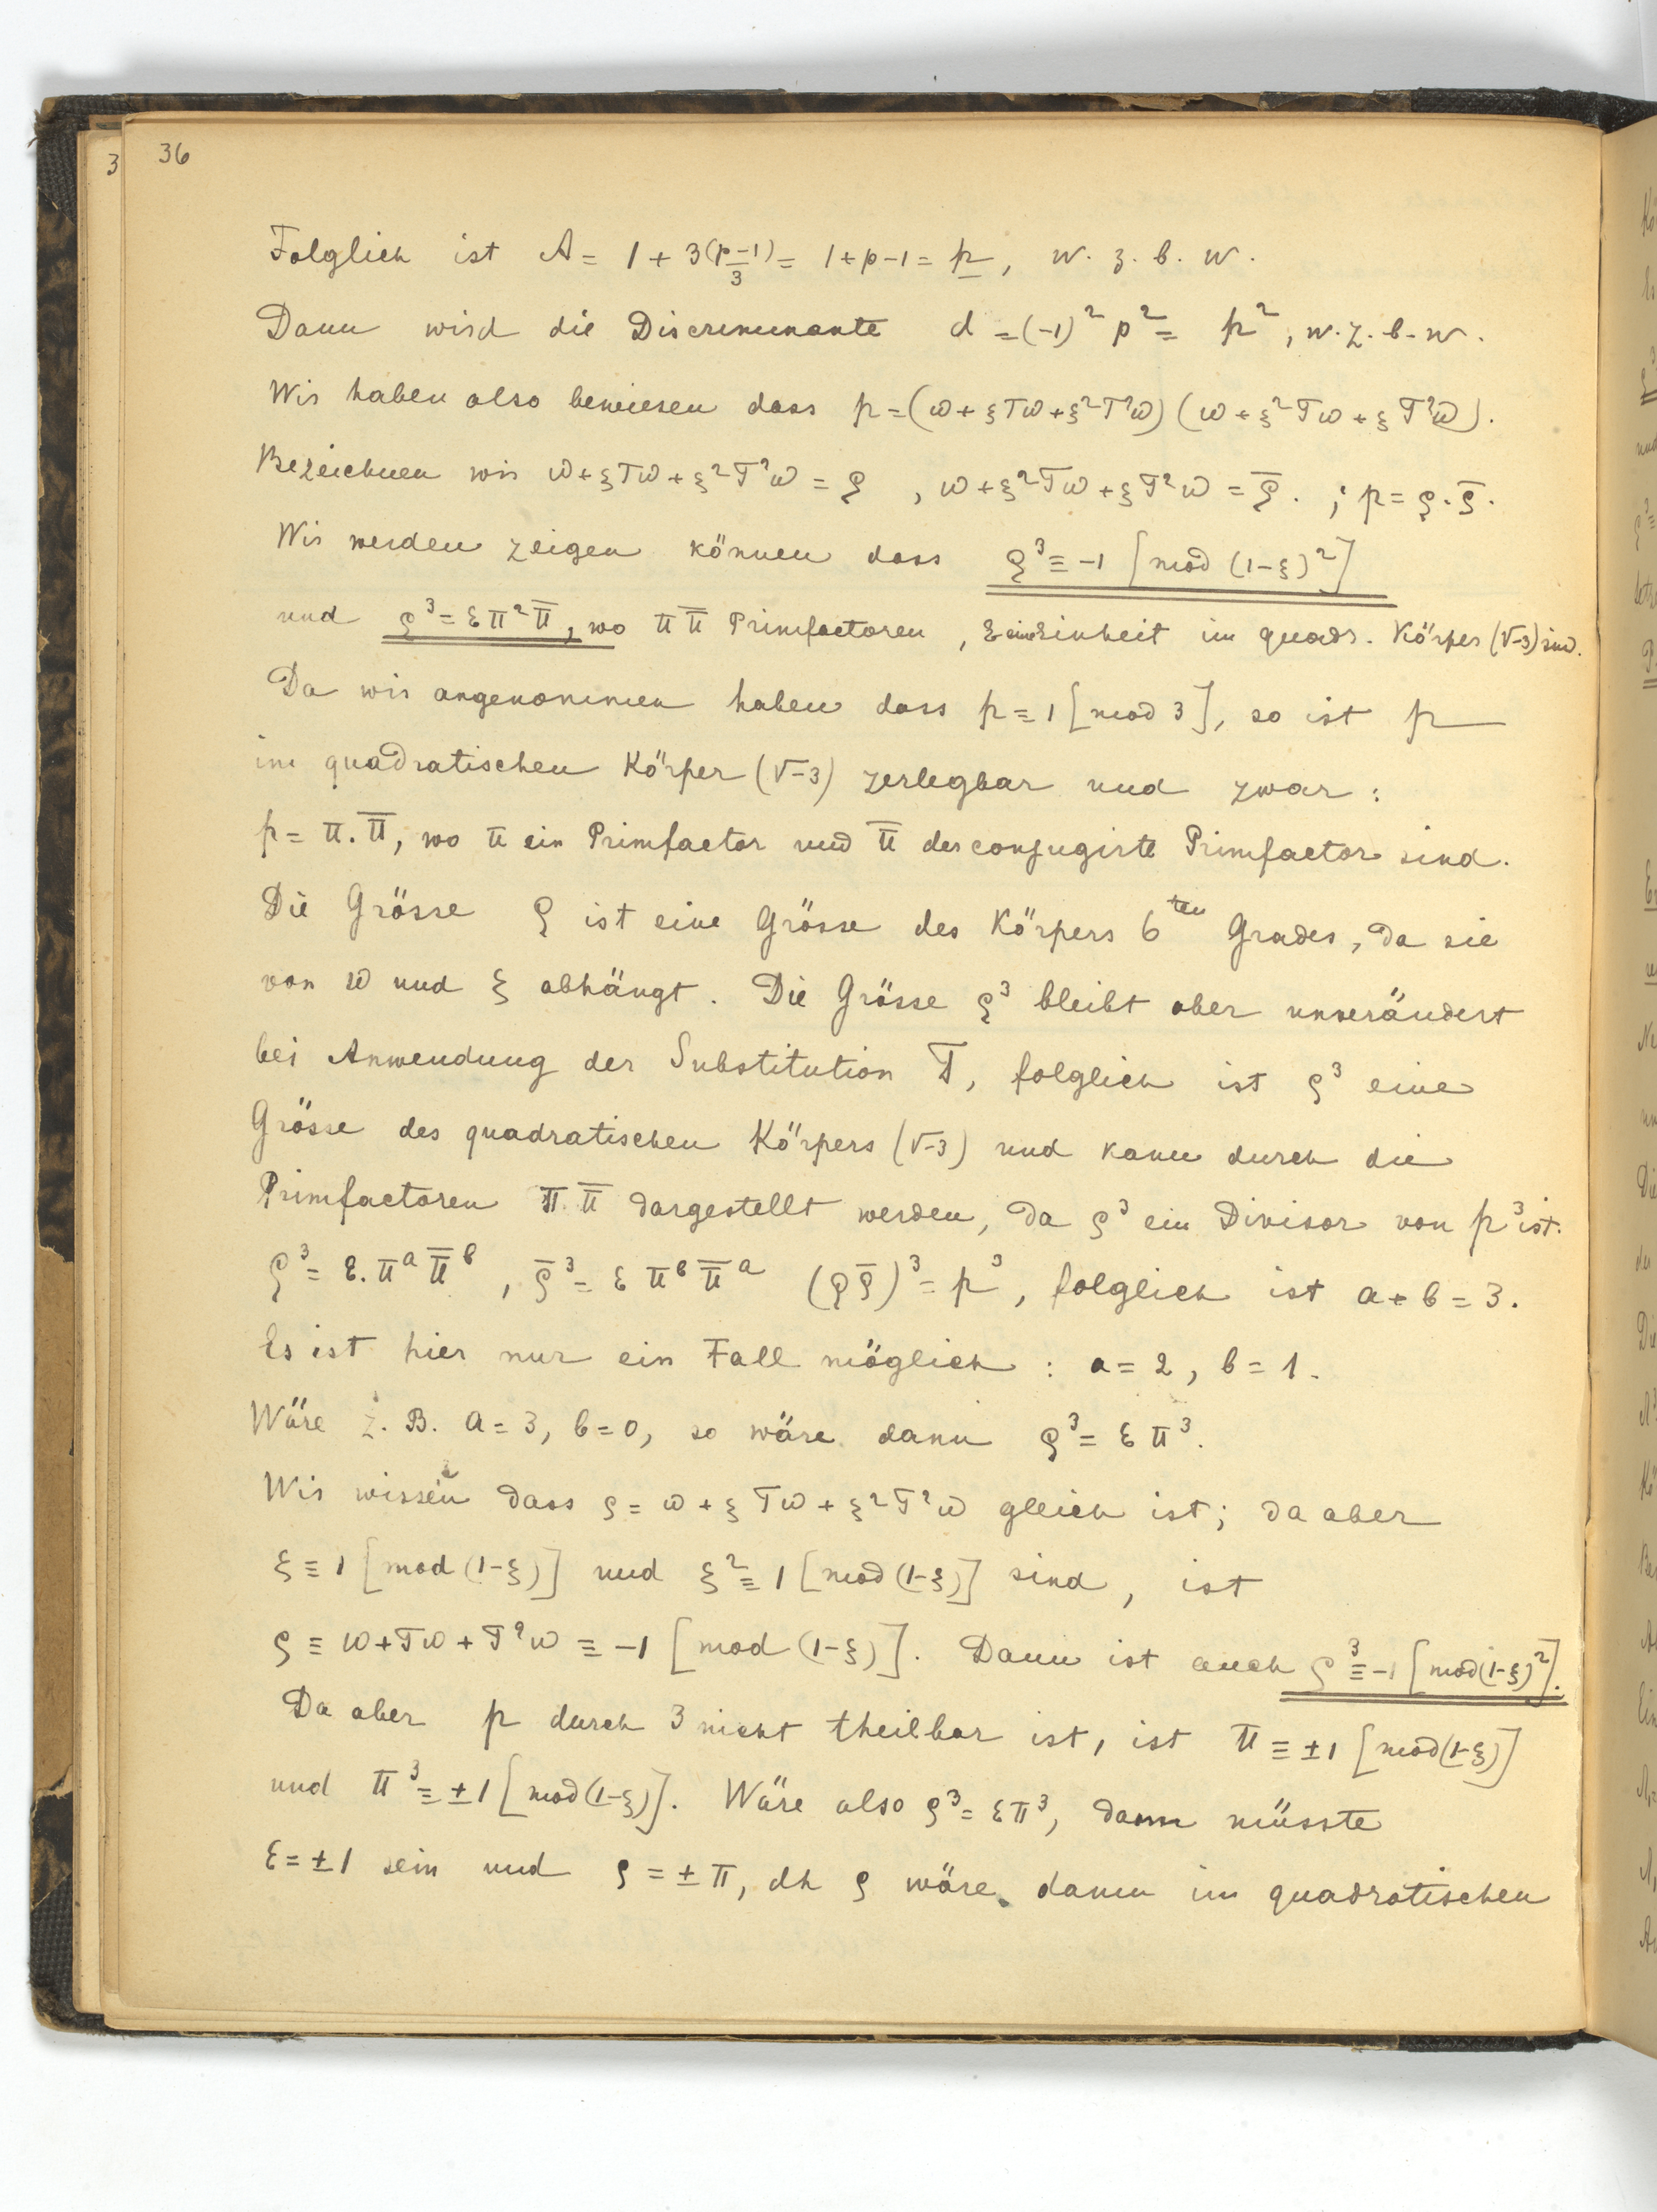 36
3
Folglich ist A = 1 + 3(p-1)/3 = 1+p-1 = p, w. z. b. w.
Dann wird die Discriminante d = (-1)² p² = p², w. z. b. w.
Wir haben also bewiesen dass p = (ω + ξTω + ξ²T²ω) (ω + ξ²Tω + ξT²ω).
Bezeichnen wir ω + ξTω + ξ²T²ω = ρ , ω + ξ²Tω + ξT²ω = ρ̄. ; p = ρ.ρ̄.
Wir werden zeigen können dass ρ³ ≡ -1 [mod (1-ξ)²]
und ρ³ = επ²π̄, wo π π̄ Primfactoren , ε eine Einheit im quadr. Körper (√-3) sind.
Da wir angenommen haben dass p ≡ 1 [mod 3], so ist p
im quadratischen Körper (√-3) zerlegbar und zwar :
p = π.π̄, wo π ein Primfactor und π̄ der conjugirte Primfactor sind.
Die Grösse ρ ist eine Grösse des Körpers 6ten Grades, da sie
von ω und ξ abhängt. Die Grösse ρ³ bleibt aber unverändert
bei Anwendung der Substitution T, folglich ist ρ³ eine
Grösse des quadratischen Körpers (√-3) und kann durch die
Primfactoren π.π̄ dargestellt werden, da ρ³ ein Divisor von p³ ist.
ρ³ = ε.πᵃ π̄ᵇ , ρ̄³ = ε πᵇ π̄ᵃ (ρρ̄)³ = p³, folglich ist a + b = 3.
Es ist hier nur ein Fall möglich : a = 2, b = 1.
Wäre z. B. a = 3, b = 0, so wäre dann ρ³ = ε π³.
Wir wissen dass ρ = ω + ξ Tω + ξ²T²ω gleich ist; da aber
ξ ≡ 1 [mod (1-ξ)] und ξ² ≡ 1 [mod (1-ξ)] sind, ist
ρ ≡ ω + Tω + T²ω ≡ -1 [mod (1-ξ)]. Dann ist auch ρ³ ≡ -1 [mod (1-ξ)²].
Da aber p durch 3 nicht theilbar ist, ist π ≡ ±1 [mod (1-ξ)]
und π³ ≡ ±1 [mod (1-ξ)]. Wäre also ρ³ = επ³, dann müsste
ε = ±1 sein und ρ = ± π, dh ρ wäre dann im quadratischen